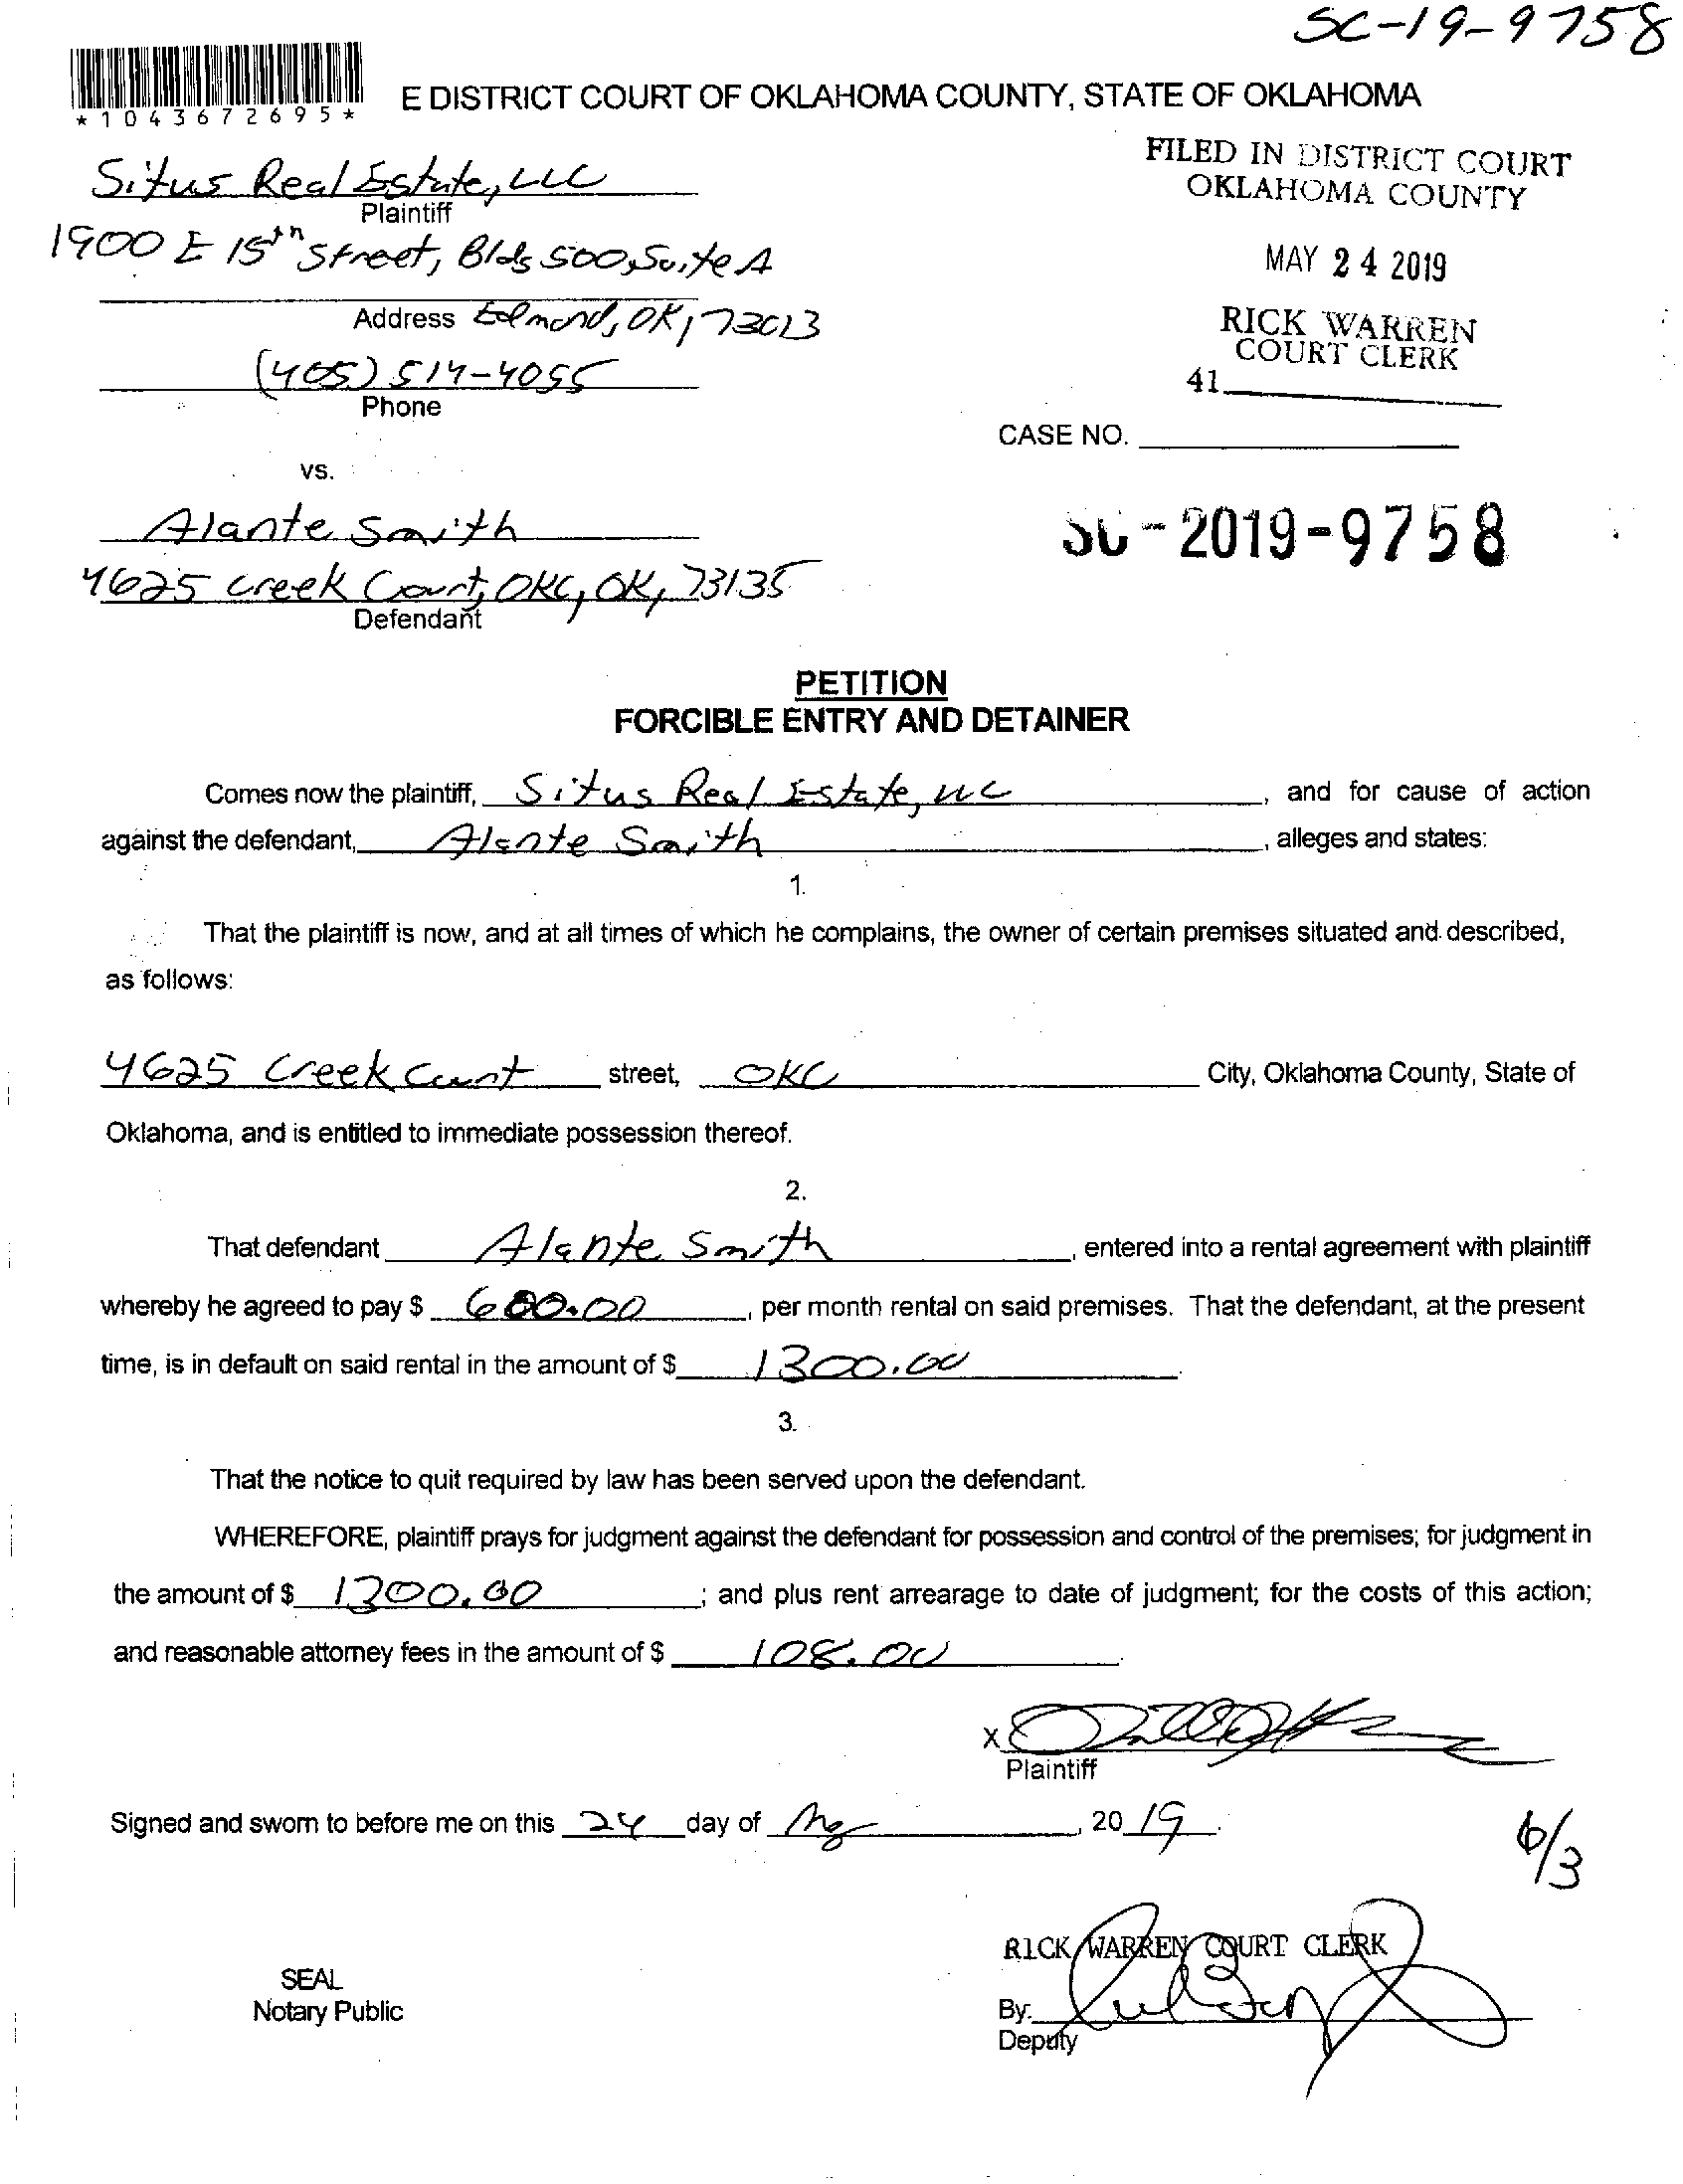 SC-19-9758
*1043672695*
E DISTRICT COURT OF OKLAHOMA COUNTY, STATE OF OKLAHOMA
FILED IN DISTRICT COURT
OKLAHOMA COUNTY
MAY 24 2019
RICK WARREN
COURT CLERK
41
Situs Real Estate, LLC
Plaintiff
1900 E 15th Street, Bldg 500, Suite A
Address Edmond, OK, 73013
(405) 514-4055
Phone
CASE NO.
vs.
SC-2019-9758
Alante Smith
4625 Creek Court, OKC, OK, 73135
Defendant
PETITION
FORCIBLE ENTRY AND DETAINER
Comes now the plaintiff, Situs Real Estate, LLC, and for cause of action
against the defendant, Alante Smith, alleges and states:
1.
That the plaintiff is now, and at all times of which he complains, the owner of certain premises situated and described,
as follows:
4625 Creek Court street, OKC City, Oklahoma County, State of
Oklahoma, and is entitled to immediate possession thereof.
2.
That defendant Alante Smith, entered into a rental agreement with plaintiff
whereby he agreed to pay $ 600.00, per month rental on said premises. That the defendant, at the present
time, is in default on said rental in the amount of $ 1300.00.
3.
That the notice to quit required by law has been served upon the defendant.
WHEREFORE, plaintiff prays for judgment against the defendant for possession and control of the premises; for judgment in
the amount of $ 1300.00; and plus rent arrearage to date of judgment; for the costs of this action;
and reasonable attorney fees in the amount of $ 108.00.
X
Plaintiff
Signed and sworn to before me on this 24 day of May, 2019.
6/3
RICK WARREN COURT CLERK
SEAL
Notary Public
By:
Deputy